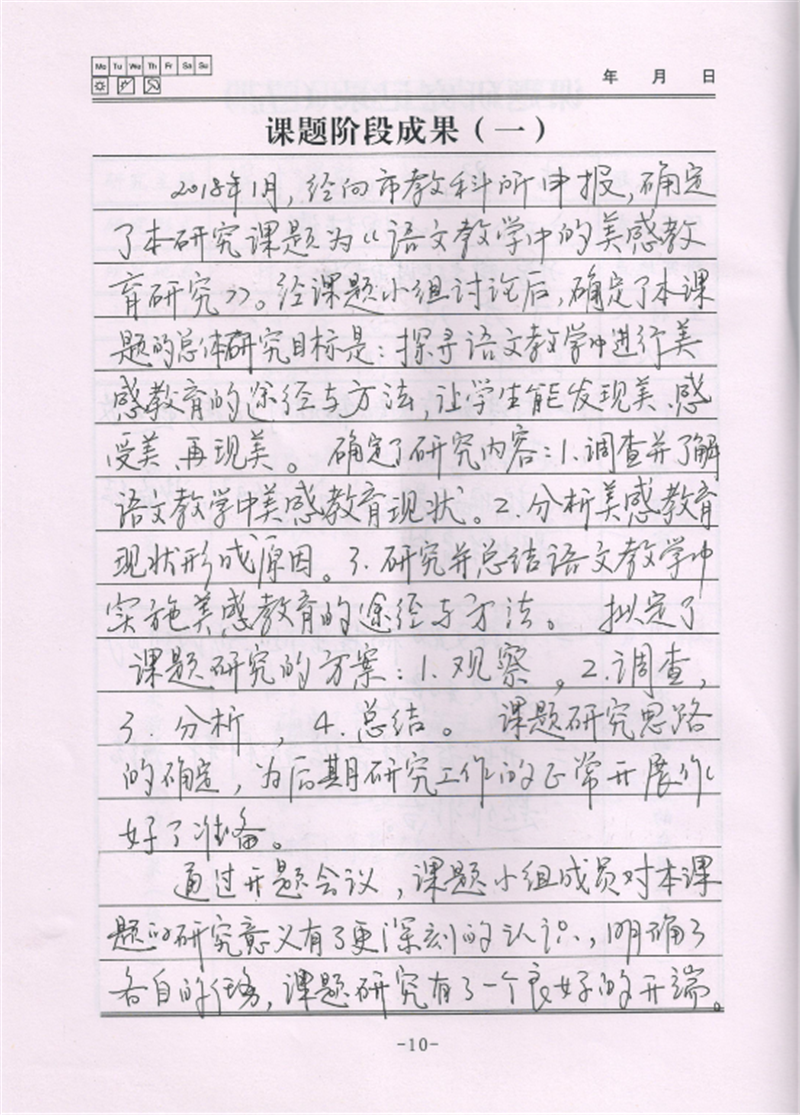 Mo Tu We Th Fr Sa Su
年 月 日
课题阶段成果(一)
2018年1月,经向市教科所申报,确定
了本研究课题为《语文教学中的美感教
育研究》。经课题小组讨论后,确定了本课
题的总体研究目标是:探寻语文教学中进行美
感教育的途径与方法,让学生能发现美、感
受美、再现美。 确定了研究内容:1.调查并了解
语文教学中美感教育现状。2.分析美感教育
现状形成原因。3.研究并总结语文教学中
实施美感教育的途径与方法。 拟定了
课题研究的方案:1.观察,2.调查,
3.分析,4.总结。 课题研究思路
的确定,为后期研究工作的正常开展作
好了准备。
通过开题会议,课题小组成员对本课
题的研究意义有了更深刻的认识,明确了
各自的任务,课题研究有了一个良好的开端。
-10-